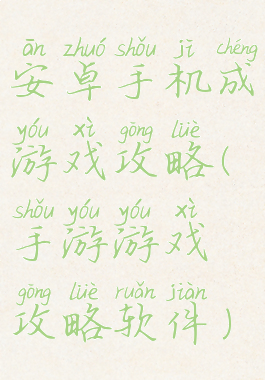 ān zhuó shǒu jī chéng
安卓手机成
yóu xì gōng lüè
游戏攻略(
shǒu yóu yóu xì
手游游戏
gōng lüè ruǎn jiàn
攻略软件)